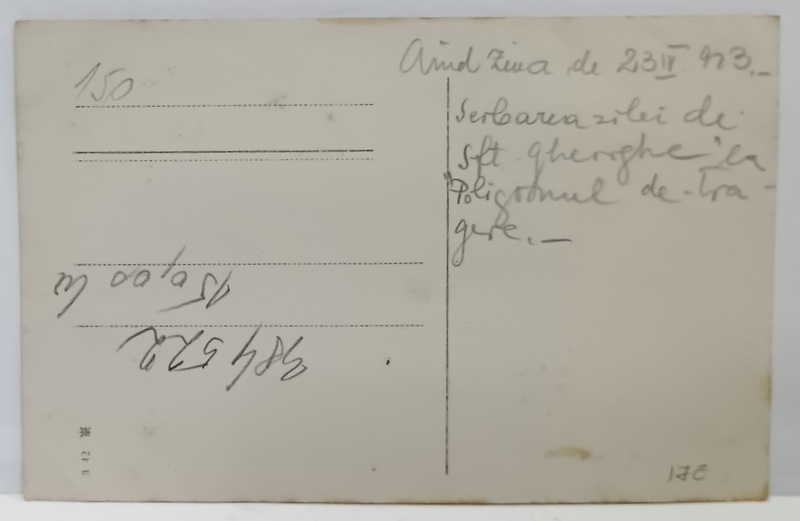 150
Aiud Ziua de 23 IV 943.—
Serbarea zilei de
Sft. Gheorghe "la
Poligronul de tra-
gere.—
150,00 lei
384522
R 42
17E